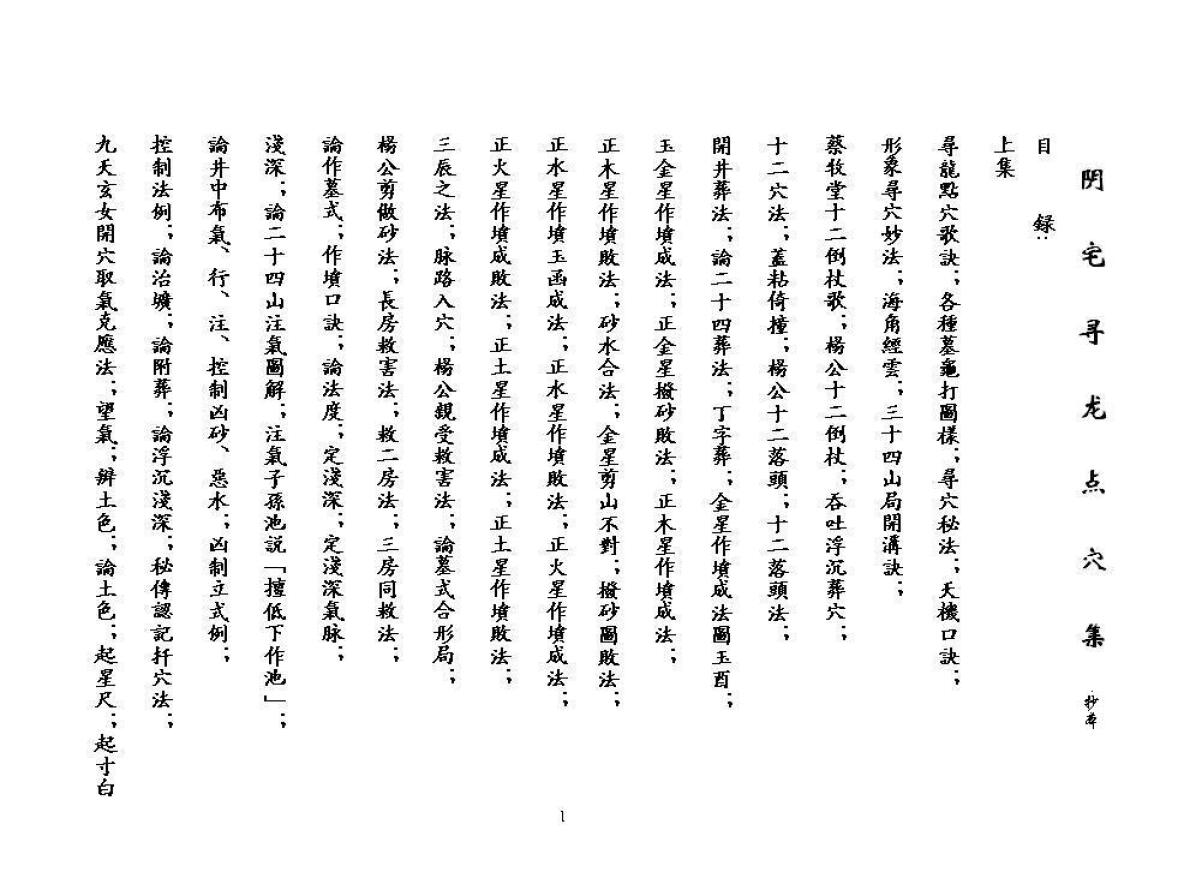 阴宅寻龙点穴集 抄本
目录:
上集
尋龍點穴歌訣;各種墓龜打圖樣;尋穴秘法;天機口訣;
形象尋穴妙法;海角經雲;三十四山局開溝訣;
蔡牧堂十二倒杖歌;楊公十二倒杖;吞吐浮沉葬穴;
十二穴法;蓋粘倚撞;楊公十二落頭;十二落頭法;
開井葬法;論二十四葬法;丁字葬;金星作墳成法圖玉酉;
玉金星作墳成法;正金星撥砂敗法;正木星作墳成法;
正木星作墳敗法;砂水合法;金星剪山不對;撥砂圖敗法;
正水星作墳玉函成法;正水星作墳敗法;正火星作墳成法;
正火星作墳成敗法;正土星作墳成法;正土星作墳敗法;
三辰之法;脉路入穴;楊公親受救害法;論墓式合形局;
楊公剪做砂法;長房救害法;救二房法;三房同救法;
論作墓式;作墳口訣;論法度;定淺深;定淺深氣脉;
淺深;論二十四山注氣圖解;注氣子孫池説「擅低下作池」;
論井中布氣、行、注、控制凶砂、惡水;凶制立式例;
控制法例;論治壙;論附葬;論浮沉淺深;秘傳認記扦穴法;
九天玄女開穴取氣克應法;望氣;辨土色;論土色;起星尺;起寸白
1